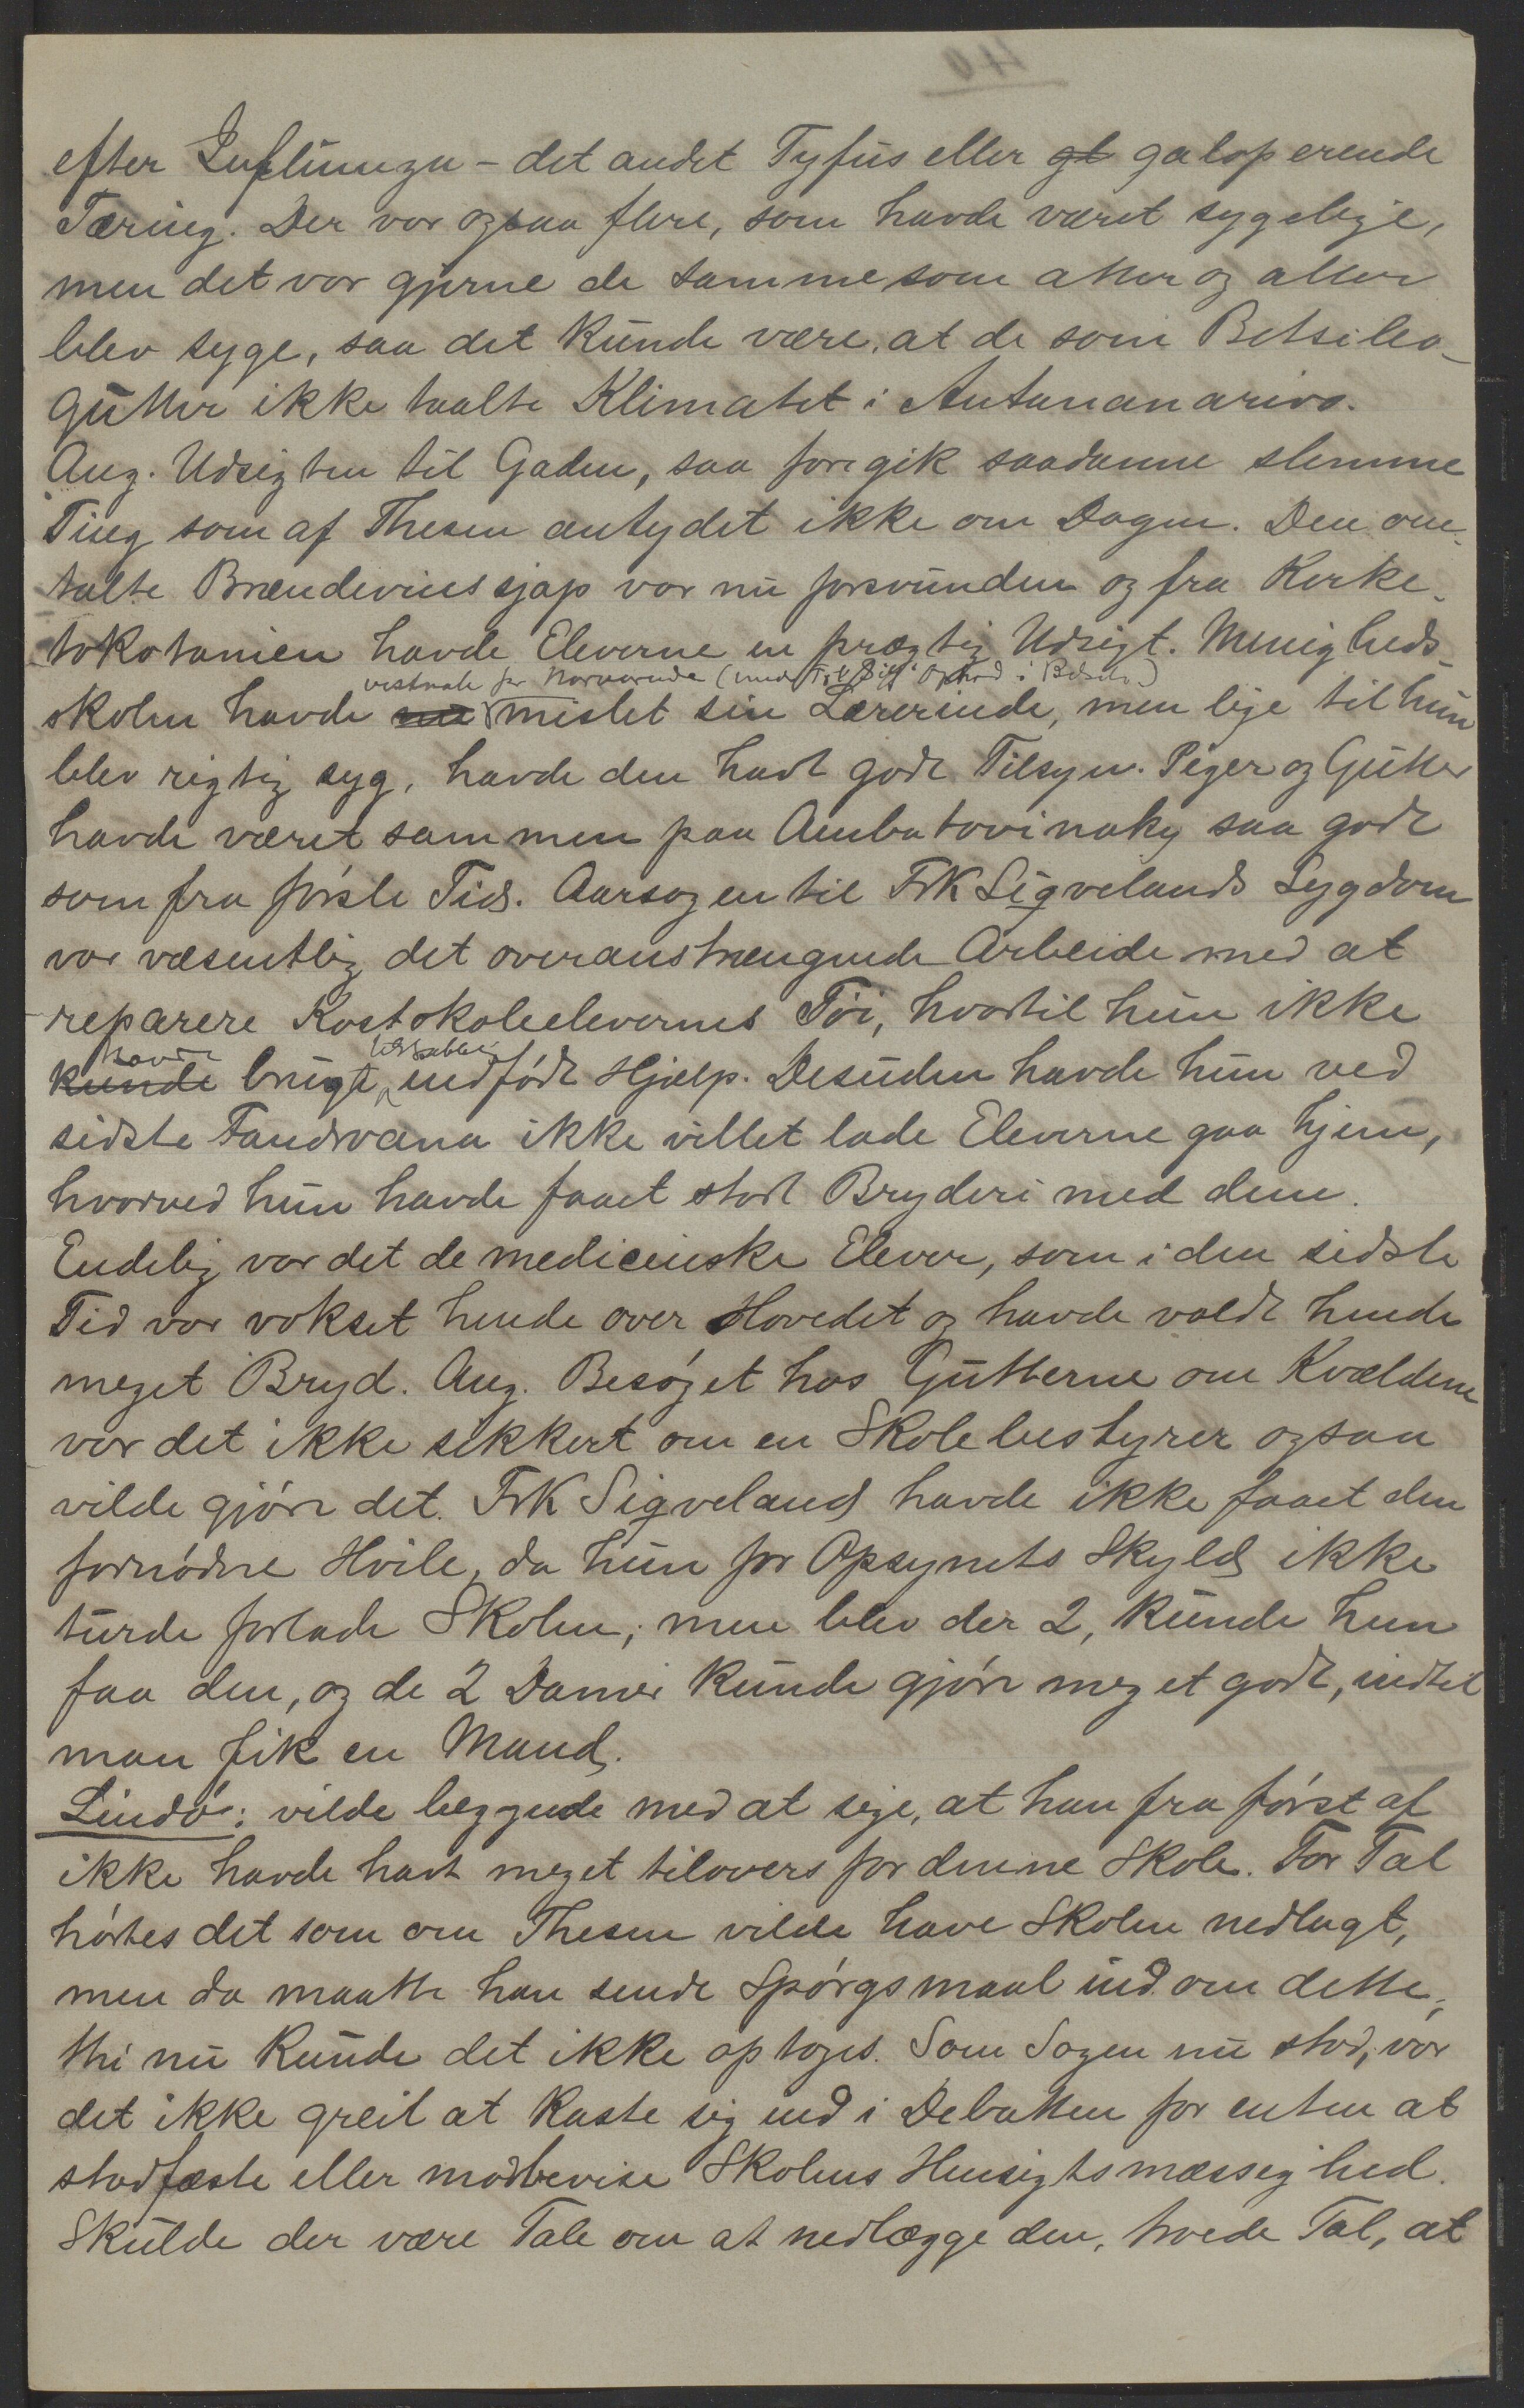 efter Influenza - det andet Tyfus eller gl galoperende
Tæring. Der var ogsaa flere, som havde været sygelige,
men det var gjerne de samme som atter og atter
blev syge, saa det kunde være, at de som Betsileo-
gutter ikke taalte Klimatet i Antananarivo.
Ang. Udsigten til Gaden, saa foregik saadanne slemme
Ting som af Thesen antydet ikke om Dagen. Den om-
talte Brændevinssjap var nu forsvunden og fra Kirke-
tokotanien havde Eleverne en prægtig Udsigt. Menigheds-
for Nærværende (under Frk Sig's Ophold i Betsileo)
skolen havde nu mistet sin Lærerinde, men lige til hun
blev rigtig syg, havde den havt godt Tilsyn. Piger og Gutter
havde været sammen paa Ambatovinaky saa godt
som fra første Tid. Aarsagen til Frk Sigvelands Sygdom
var væsentlig det overanstrængende Arbeide med at
reparere Kostskoleelevernes Tøi, hvortil hun ikke
havde
kunde brugt indfødt Hjælp. Desuden havde hun ved
sidste Fandroana ikke villet lade Eleverne gaa hjem,
hvorved hun havde faaet stort Bryderi med dem.
Endelig var det de medicinske Elever, som i den sidste
Tid var vokset hende over Hovedet og havde voldt hende
meget Bryd. Ang. Besøget hos Gutterne om Kvældene
var det ikke sikkert om en Skolebestyrer ogsaa
vilde gjøre det. Frk Sigveland havde ikke faaet den
fornødne Hvile, da hun for Opsynets Skyld ikke
turde forlade Skolen; men blev der 2, kunde hun
faa den, og de 2 Damer kunde gjøre meget godt, indtil
man fik en Mand.
Lindø: vilde begynde med at sige, at han fra først af
ikke havde havt meget tilovers for denne Skole. For Tal
hørtes det som om Thesen vilde have Skolen nedlagt,
men da maatte han sende Spørgsmaal ind om dette,
thi nu kunde det ikke optages. Som Sagen nu stod, var
det ikke greit at kaste sig ind i Debatten for enten at
stadfæste eller modbevise Skolens Hensigtsmæssighed.
Skulde der være Tale om at nedlægge den, havde Tal, at